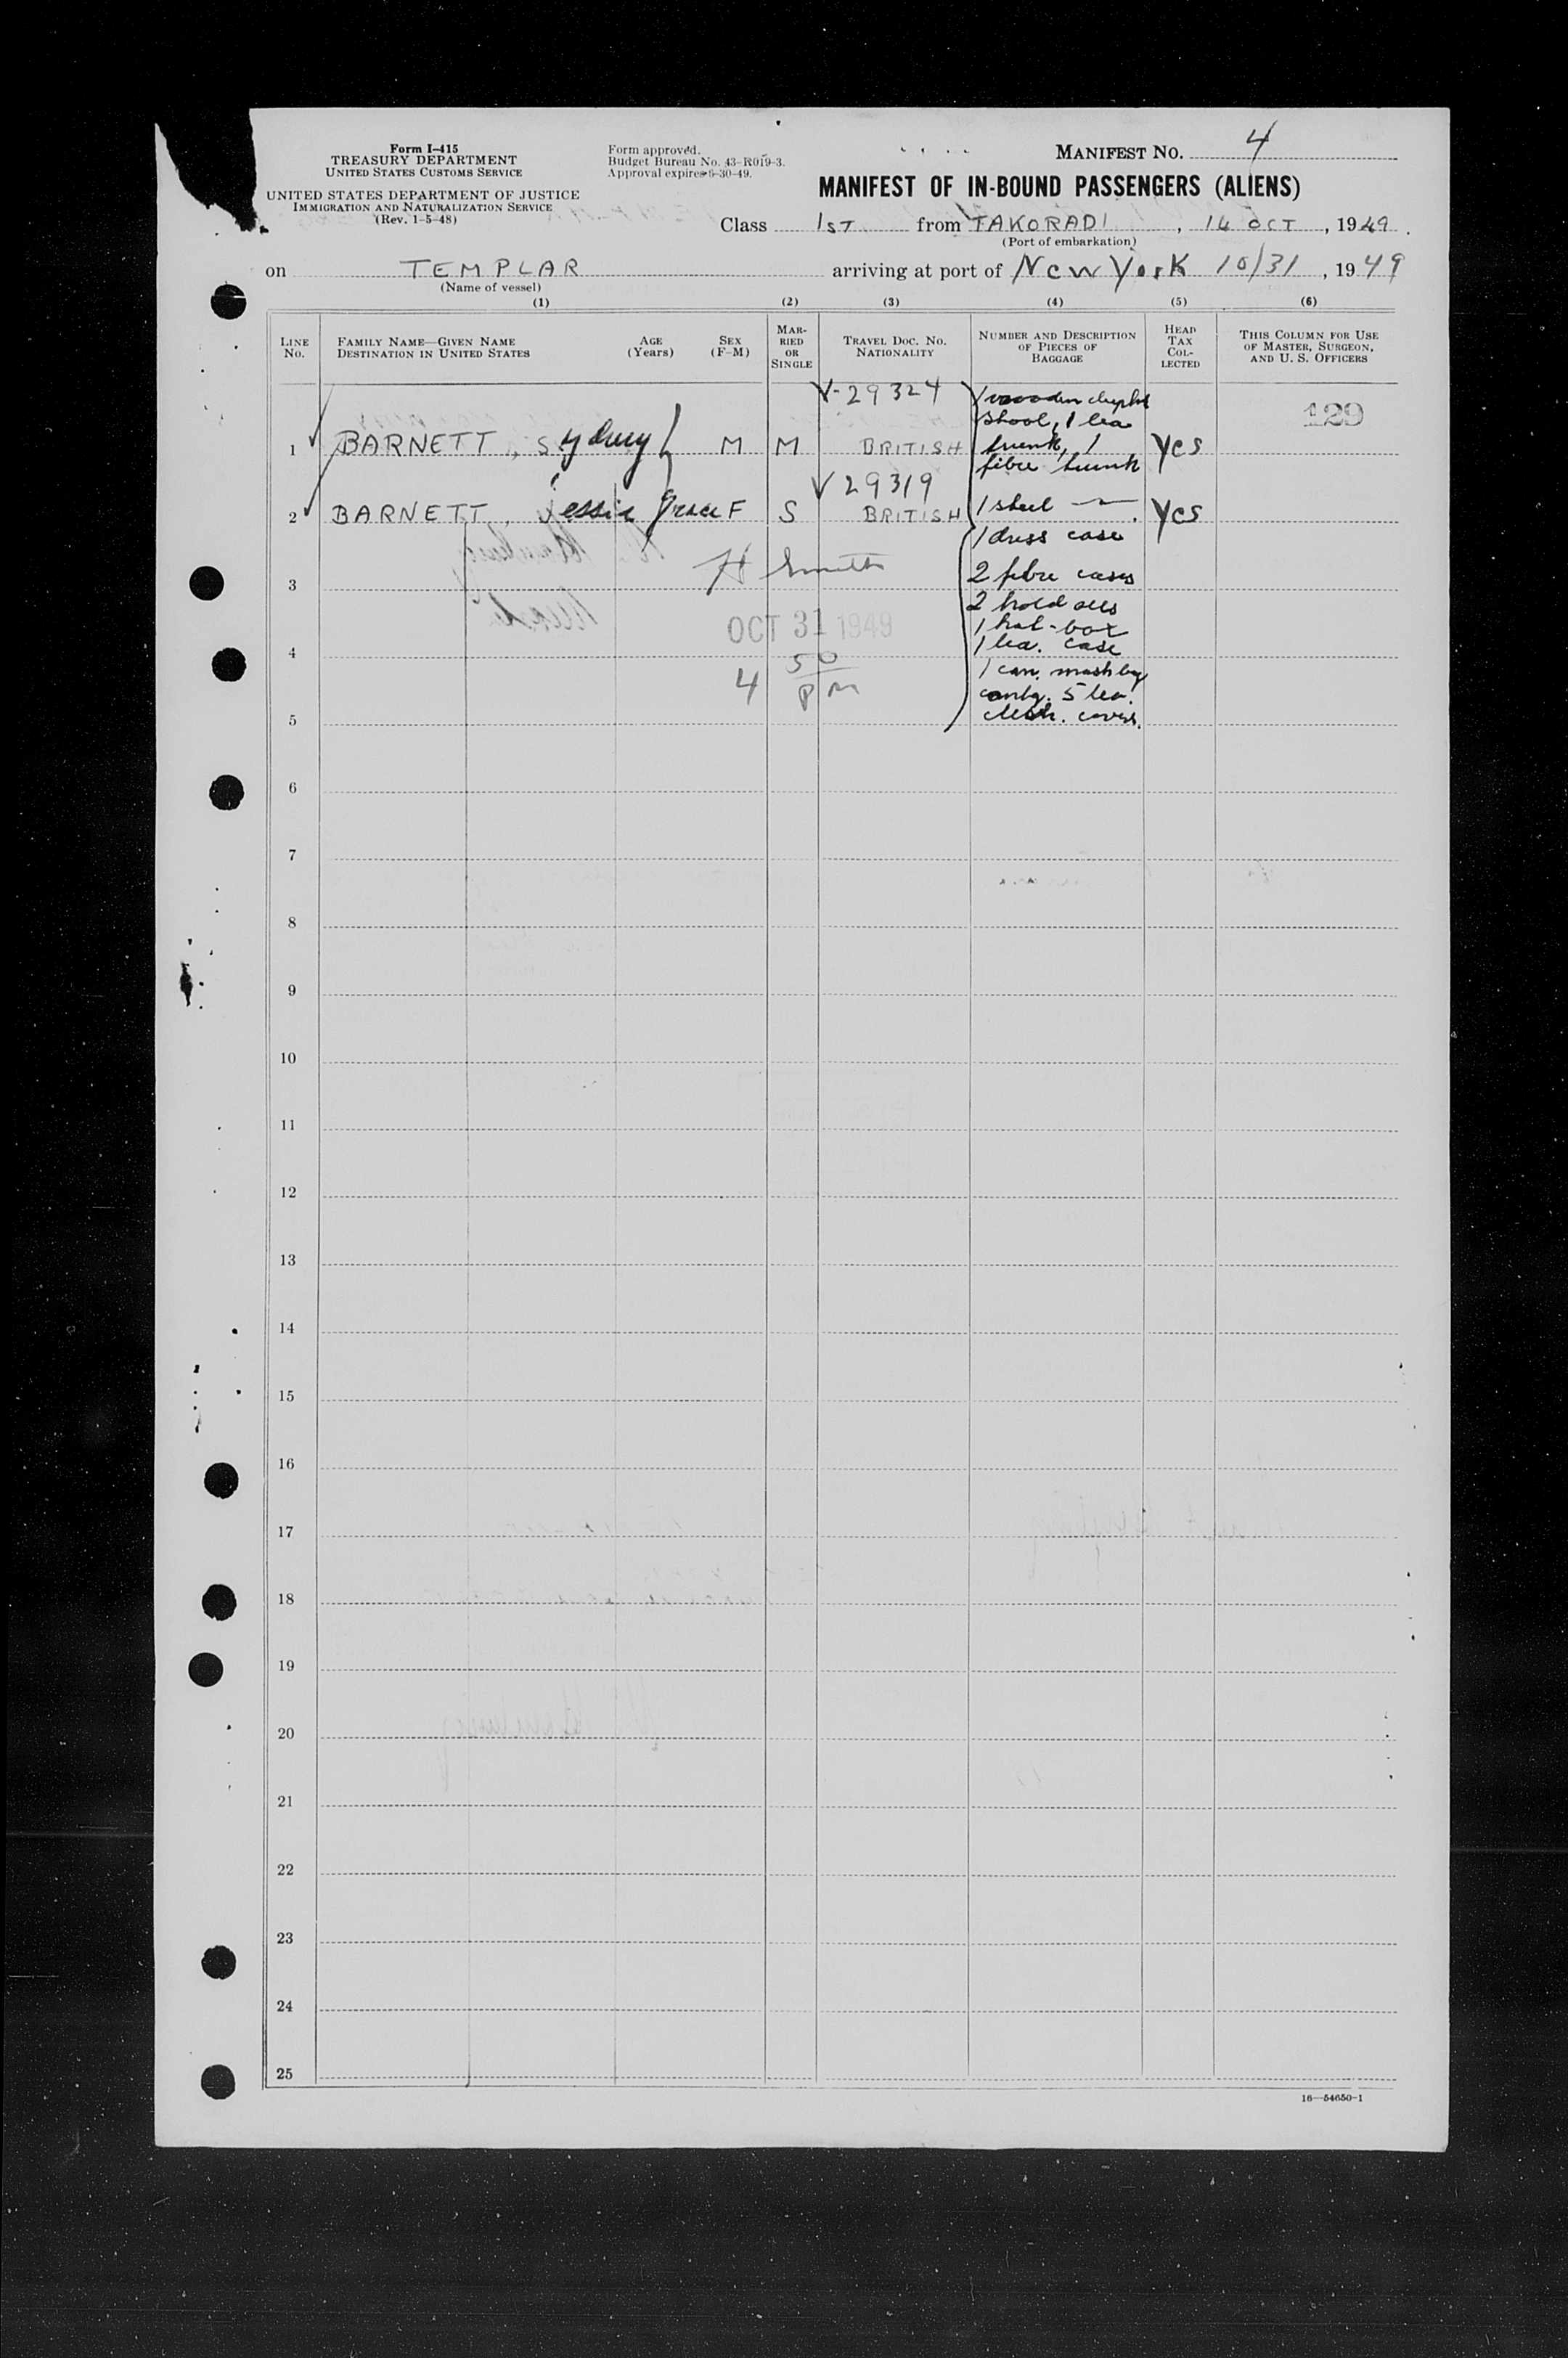 Form I-415
TREASURY DEPARTMENT
UNITED STATES CUSTOMS SERVICE
UNITED STATES DEPARTMENT OF JUSTICE
IMMIGRATION AND NATURALIZATION SERVICE
(Rev. 1-5-48)
Form approved.
Budget Bureau No. 43-R019-3.
Approval expires 6-30-49.
MANIFEST NO. 4
MANIFEST OF IN-BOUND PASSENGERS (ALIENS)
Class 1ST from TAKORADI, 14 OCT, 1949.
(Port of embarkation)
on TEMPLAR arriving at port of New York 10/31, 1949
(Name of vessel)
(1) (2) (3) (4) (5) (6)
LINE NO.
FAMILY NAME—GIVEN NAME
DESTINATION IN UNITED STATES
AGE (Years)
SEX (F-M)
MARRIED OR SINGLE
TRAVEL DOC. NO.
NATIONALITY
NUMBER AND DESCRIPTION OF PIECES OF BAGGAGE
HEAD TAX COLLECTED
THIS COLUMN FOR USE OF MASTER, SURGEON, AND U. S. OFFICERS
V-29324 1 wooden
stool, 1 lea 129
1 BARNETT, Sydney M M BRITISH trunk, 1 Yes
fibre trunk
V 29319
2 BARNETT, Jessie Grace F S BRITISH 1 steel Yes
1 dress case
H Smith
3 2 fibre cases
2 hold alls
OCT 31 1949 1 hat-box
4 1 lea. case
4 50 PM 1 can.
contg. 5 lea.
5
6
7
8
9
10
11
12
13
14
15
16
17
18
19
20
21
22
23
24
25
16—54650-1